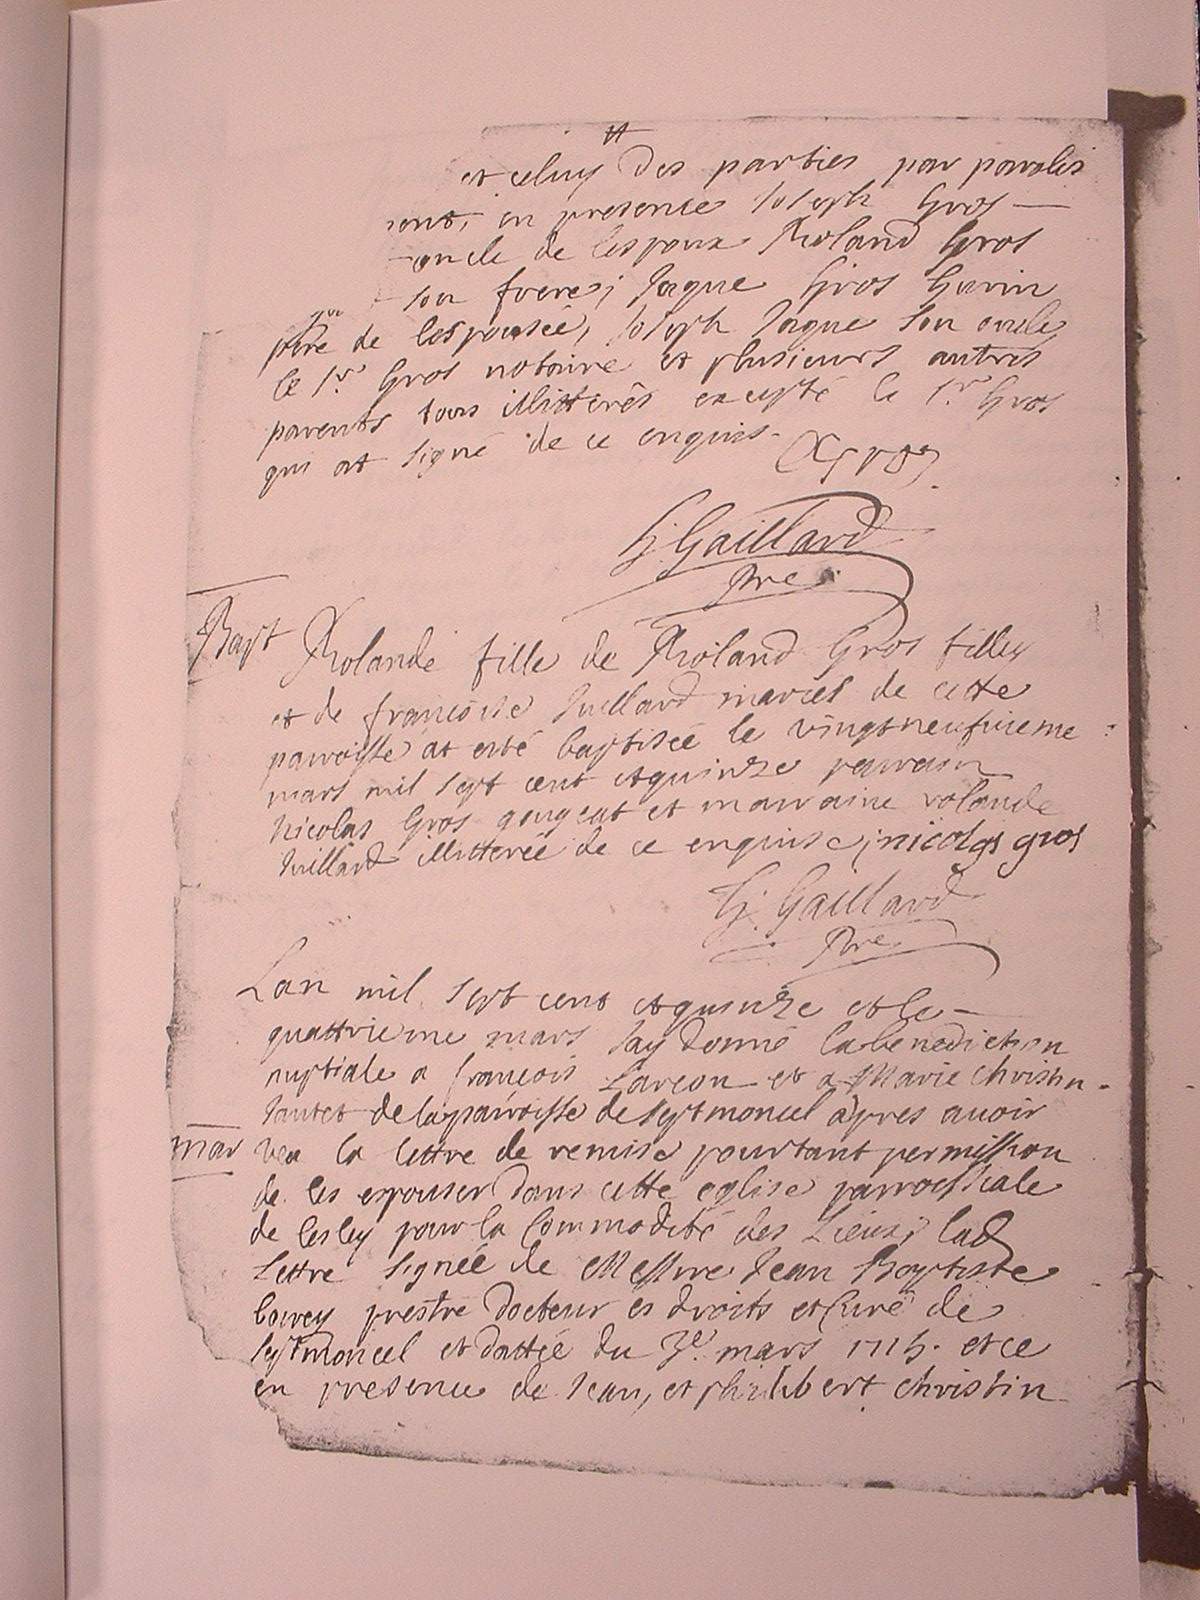 et celuy des parties par parolis
sent, en presence Joseph Gros
oncle de lespoux Roland Gros
son frere, Jaque Gros Gurin
pere de lespousée, Joseph Jaque son oncle
le Sr. Gros notaire et plusieurs autres
parents tous illitterés excepté le Sr Gros
qui at signé de ce enquis.
Gros
Gaillard
Pre
Bapt Rolande fille de Roland Gros filley
et de francoise Juillard mariés de cette
paroisse at esté baptisée le vingtneufuieme
mars mil sept cent etquinze parrain
Nicolas Gros et marraine rolande
Juillard illitterée de ce enquise, nicolas gros
Gaillard
Pre
Lan mil sept cent etquinze et le
quattrieme mars Jay donné la benediction
nuptiale a francois Larcon et a Marie Christin
Jantet de la paroisse de septmoncel apres auoir
mar veu la lettre de remise pourtant permission
de les espouser dans cette eglise parroissiale
de lesley pour la Commodité des Lieux, lad
Lettre signée de Messire Jean Baptiste
prestre docteur es droits et Curé de
septmoncel et dattée du 3e. mars 1715. et ce
en presence de Jean, et philibert Christin